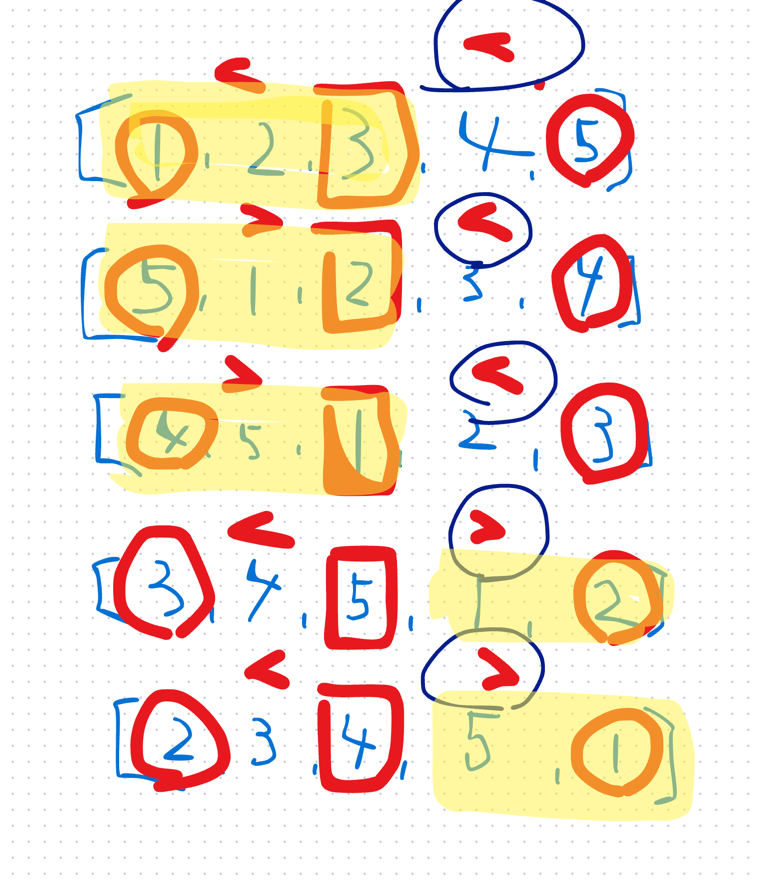 < <
[1, 2, 3, 4, 5]
> <
[5, 1, 2, 3, 4]
> <
[4, 5, 1, 2, 3]
< >
[3, 4, 5, 1, 2]
< >
[2, 3, 4, 5, 1]